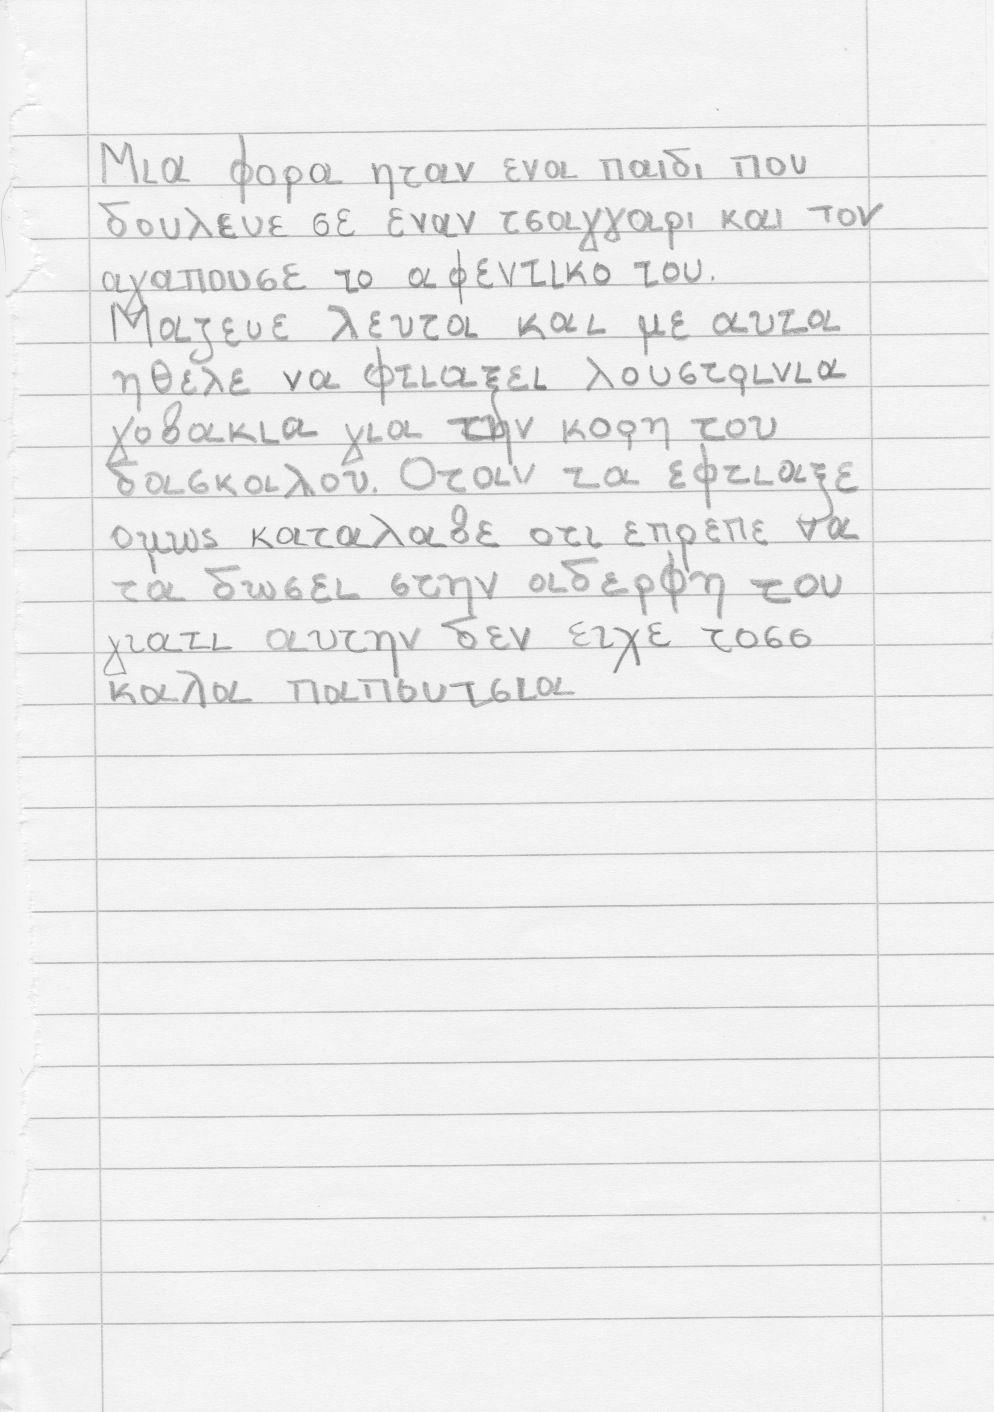 Μια φορα ηταν ενα παιδι που
δουλευε σε εναν τσαγγαρι και τον
αγαπουσε το αφεντικο του.
Μαζευε λευτα και με αυτα
ηθελε να φτιαξει λουστρινια
γοβακια για την κορη του
δασκαλου. Οταν τα εφτιαξε
ομως καταλαβε οτι επρεπε να
τα δωσει στην αδερφη του
γιατι αυτην δεν ειχε τοσο
καλα παπουτσια